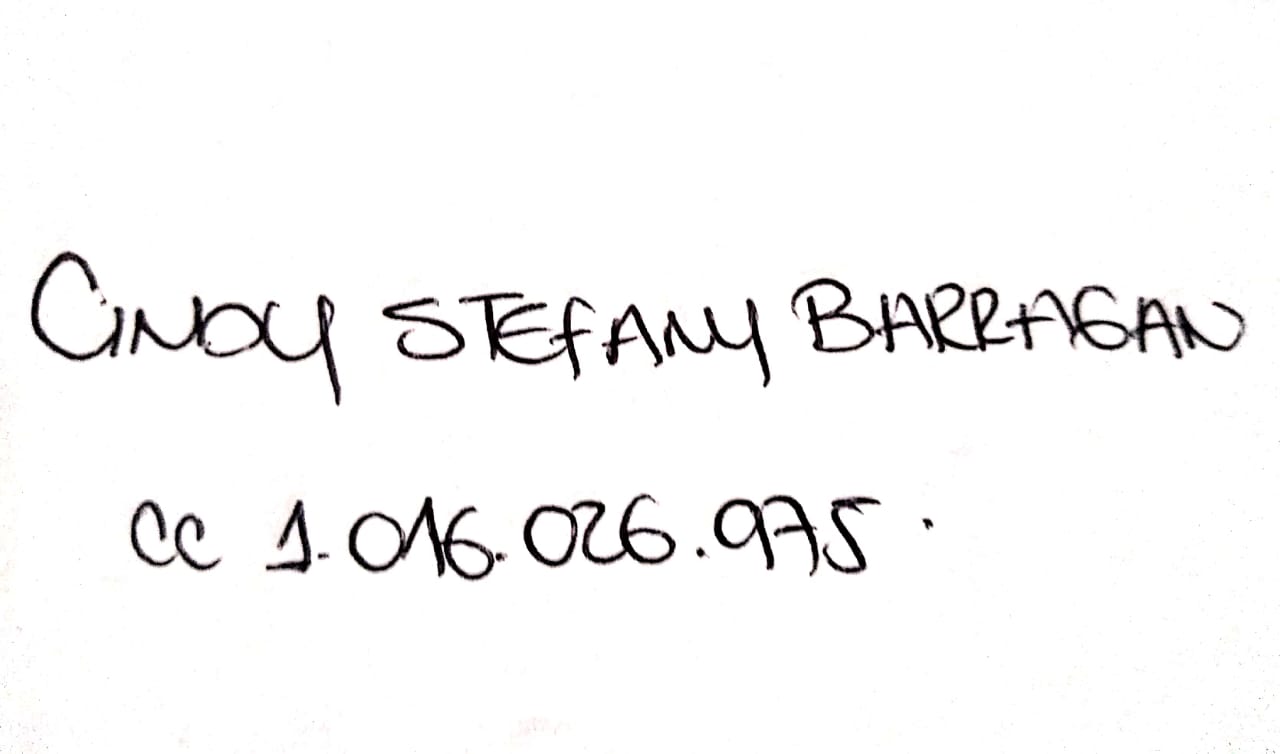 CINDY STEFANY BARRAGAN
CC 1.016.026.975.